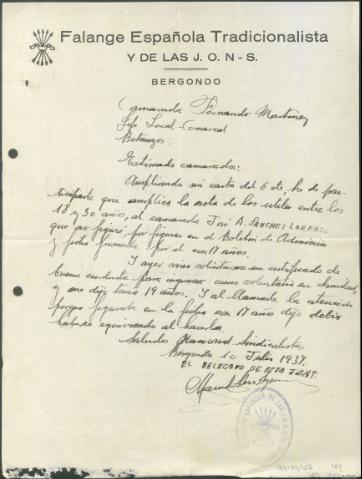 Falange Española Tradicionalista
Y DE LAS J. O. N - S.
BERGONDO
Camarada Fernando Martínez
Jefe Local-Comarcal
Betanzos
Estimado camarada:
Ampliando mi carta del 6 de
que amplíes la nota de los útiles entre los
18 y 30 años, al camarada José A. SANCHEZ LORENZO
que no figuró, por figurar en el Boletín de Admisión
y ficha con 17 años.
Y ayer vino solicitarme un certificado de
buena conducta para ingresar como voluntario en
y me dijo tener 19 años. Y al llamarle la atención
porque figuraba en la ficha con 17 años dijo debía
haberse equivocado al hacerla.
Saludos Nacional-Sindicalista
Bergondo 10 Julio 1937.
EL DELEGADO DE ESTA JONS.
49